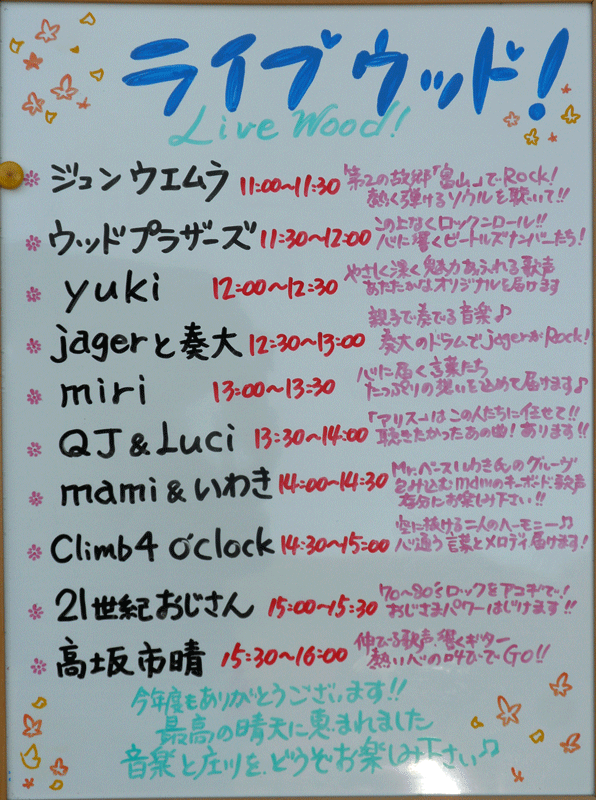 ライブウッド!
Live Wood!
ジュンウエムラ 11:00〜11:30 第2の故郷「富山」でRock!
熱く弾けるソウルを聴いて!!
ウッドブラザーズ 11:30〜12:00 この上なくロックンロール!!
心に響くビートルズナンバーたち!
yuki 12:00〜12:30 やさしく深く魅力あふれる歌声
あたたかなオリジナルを届けます
jagerと奏大 12:30〜13:00 親子で奏でる音楽♪
奏大のドラムでjagerがRock!
miri 13:00〜13:30 心に届く言葉たち
たっぷりの想いを込めて届けます♪
QJ&Luci 13:30〜14:00 「アリス」はこの人たちに任せて!!
聴きたかったあの曲!あります!!
mami&いわき 14:00〜14:30 Mr.ベースいわきくんのグルーヴ
包み込むmamiのキーボード、歌声
存分にお楽しみ下さい!!
Climb4 o'clock 14:30〜15:00 空に抜ける二人のハーモニー♫
心通う言葉とメロディ届けます!
21世紀おじさん 15:00〜15:30 70〜80'sロックをアコギで!
おじさまパワーはじけます!!
高坂市晴 15:30〜16:00 伸びる歌声、響くギター
熱い心の叫びでGO!!
今年度もありがとうございます!!
最高の晴天に恵まれました
音楽と庄川を、どうぞお楽しみ下さい♫